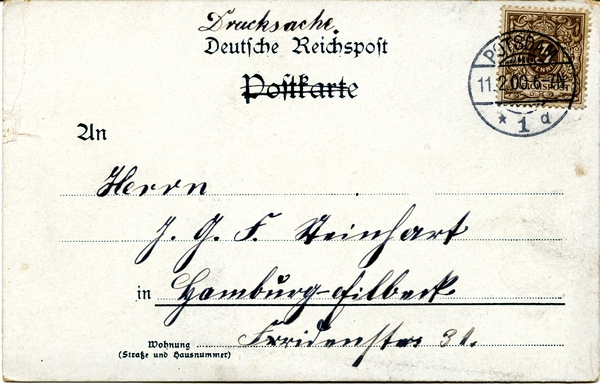 Drucksache.
Deutsche Reichspost
Postkarte
POTSDAM
11.2.00.6-7N.
* 1 d
REICHSPOST
An
Herrn
J. G. F. Steinhart
in Hamburg-Eilbeck
Wohnung
(Straße und Hausnummer)
Friedenstr. 31.